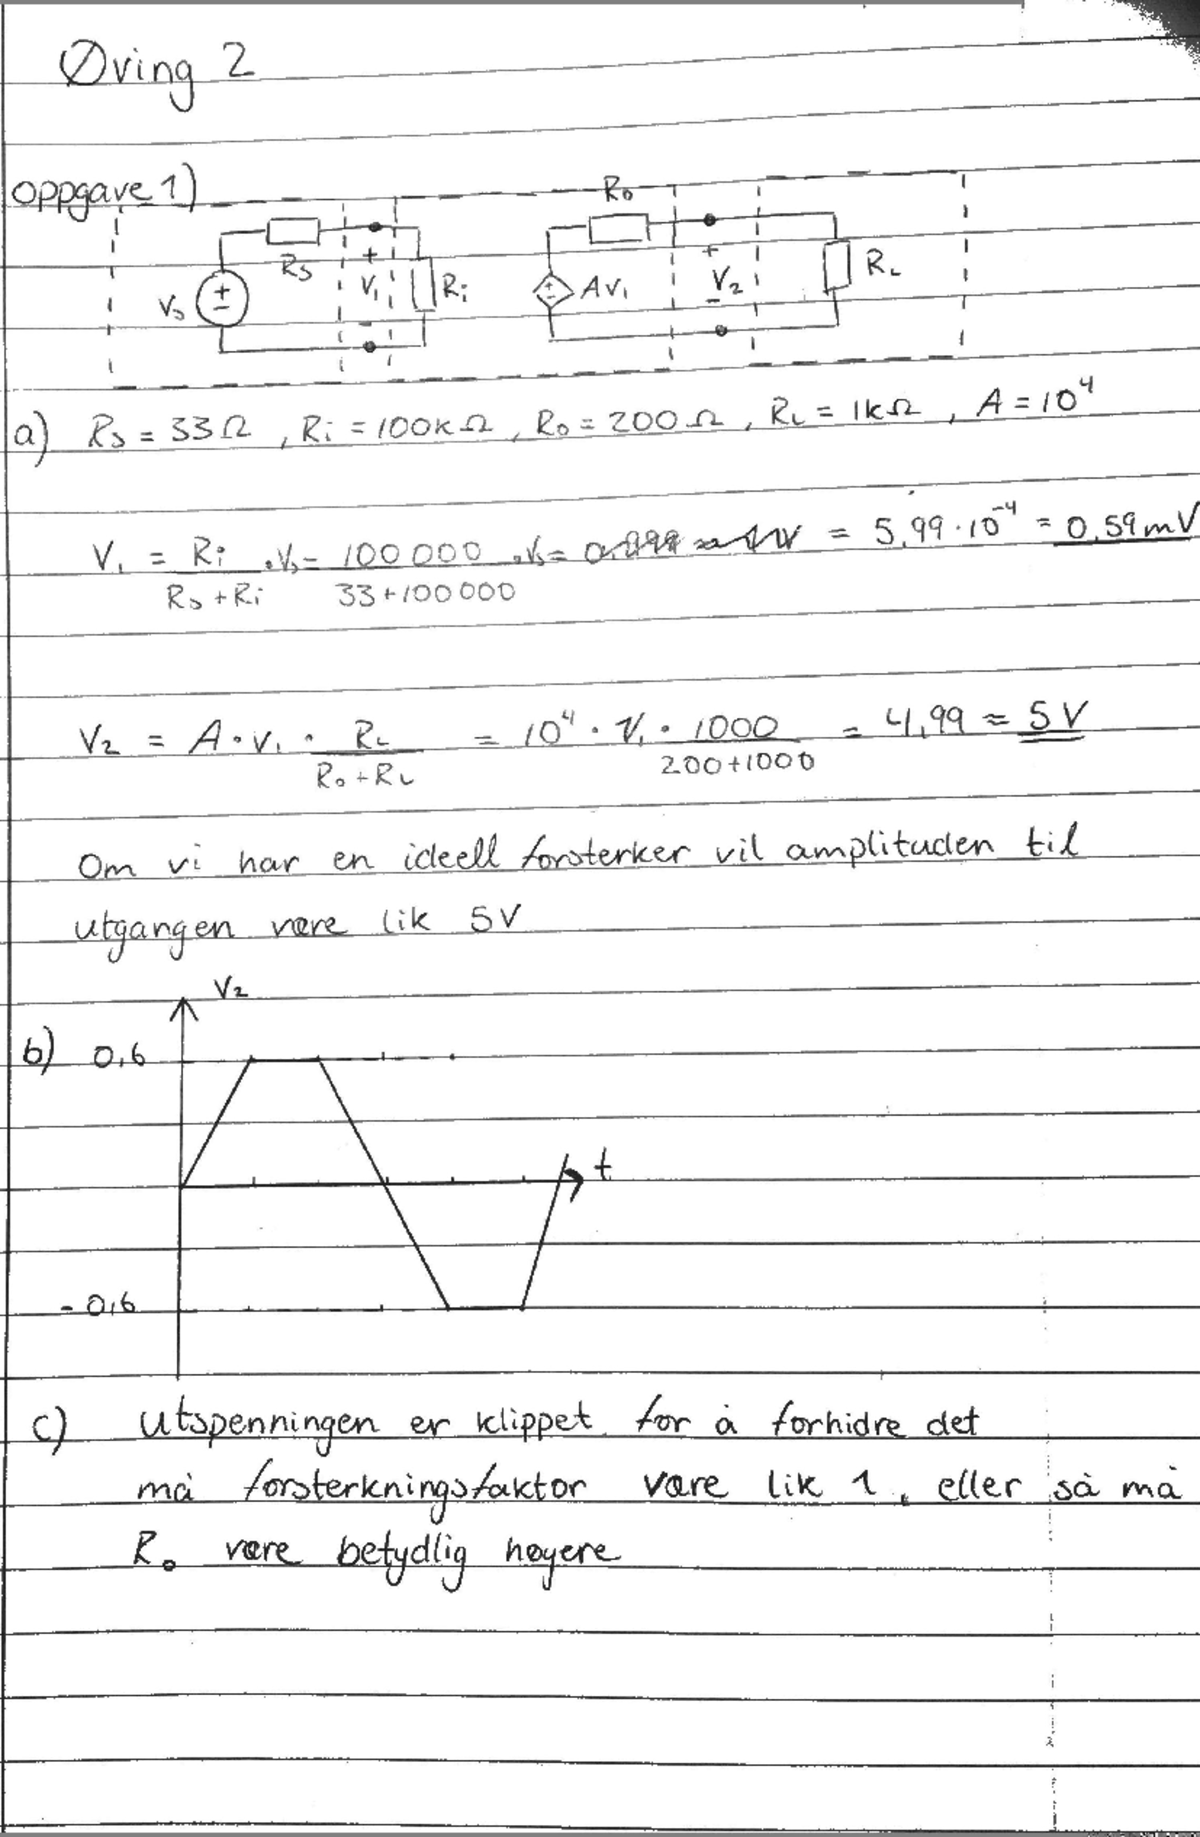 Øving 2
oppgave 1)
Rs
V₁
Ri
Vs
Ro
Av₁
V₂
RL
a) Rs = 33Ω, Ri = 100kΩ, Ro = 200Ω, RL = 1kΩ, A = 10⁴
V₁ = Ri / (Rs + Ri) · Vs = 100 000 / (33 + 100000) · Vs = = 5,99 · 10⁻⁴ = 0,59mV
V₂ = A · v₁ · RL / (Ro + RL) = 10⁴ · V₁ · 1000 / (200+1000) = 4,99 ≈ 5V
Om vi har en ideell forsterker vil amplituden til
utgangen være lik 5V
V₂
b) 0,6
t
- 0,6
c) Utspenningen er klippet. for å forhidre det
må forsterkningsfaktor være lik 1, eller så må
Ro være betydlig høyere